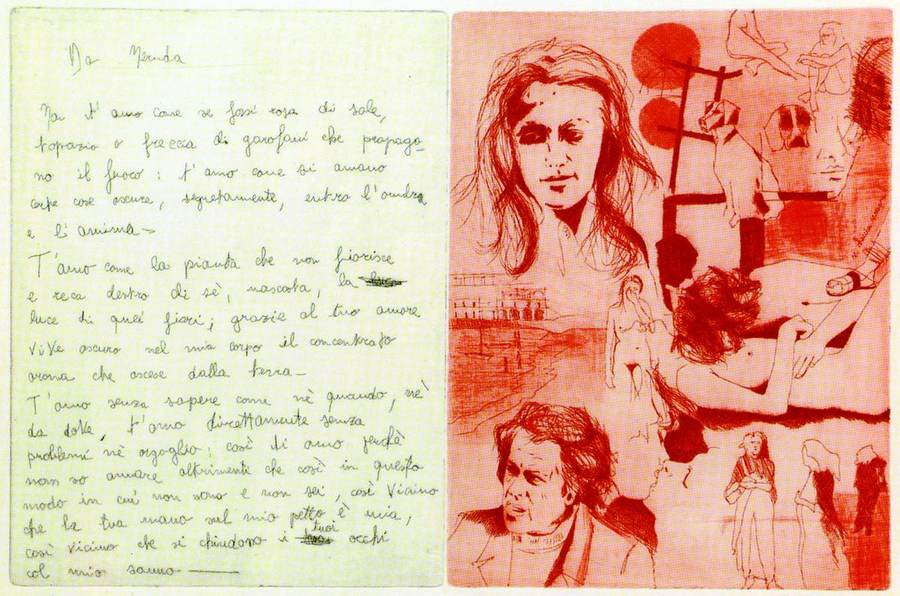 Da Neruda
Non t'amo come se fossi rosa di sale,
topazio o freccia di garofani che propaga-
no il fuoco: t'amo come si amano
certe cose oscure, segretamente, entro l'ombra
e l'anima -
T'amo come la pianta che non fiorisce
e reca dentro di sè, nascosta, la
luce di quei fiori; grazie al tuo amore
vive oscuro nel mio corpo il concentrato
aroma che ascese dalla terra -
T'amo senza sapere come nè quando, nè
da dove, t'amo direttamente senza
problemi nè orgoglio: così ti amo perchè
non so amare altrimenti che così in questo
modo in cui non sono e non sei, così vicino
che la tua mano sul mio petto è mia,
così vicino che si chiudono i tuoi occhi
col mio sonno -